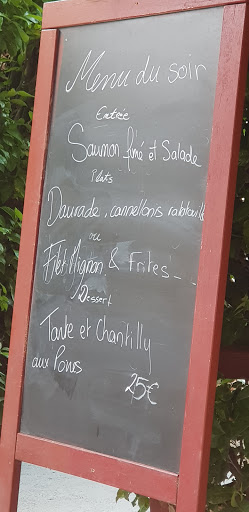 Menu du soir
Entrée
Saumon fumé et Salade
Plats
Daurade, cannellonis ratatouille
ou
Filet Mignon & Frites
Dessert
Tarte et Chantilly
aux Poires
25€